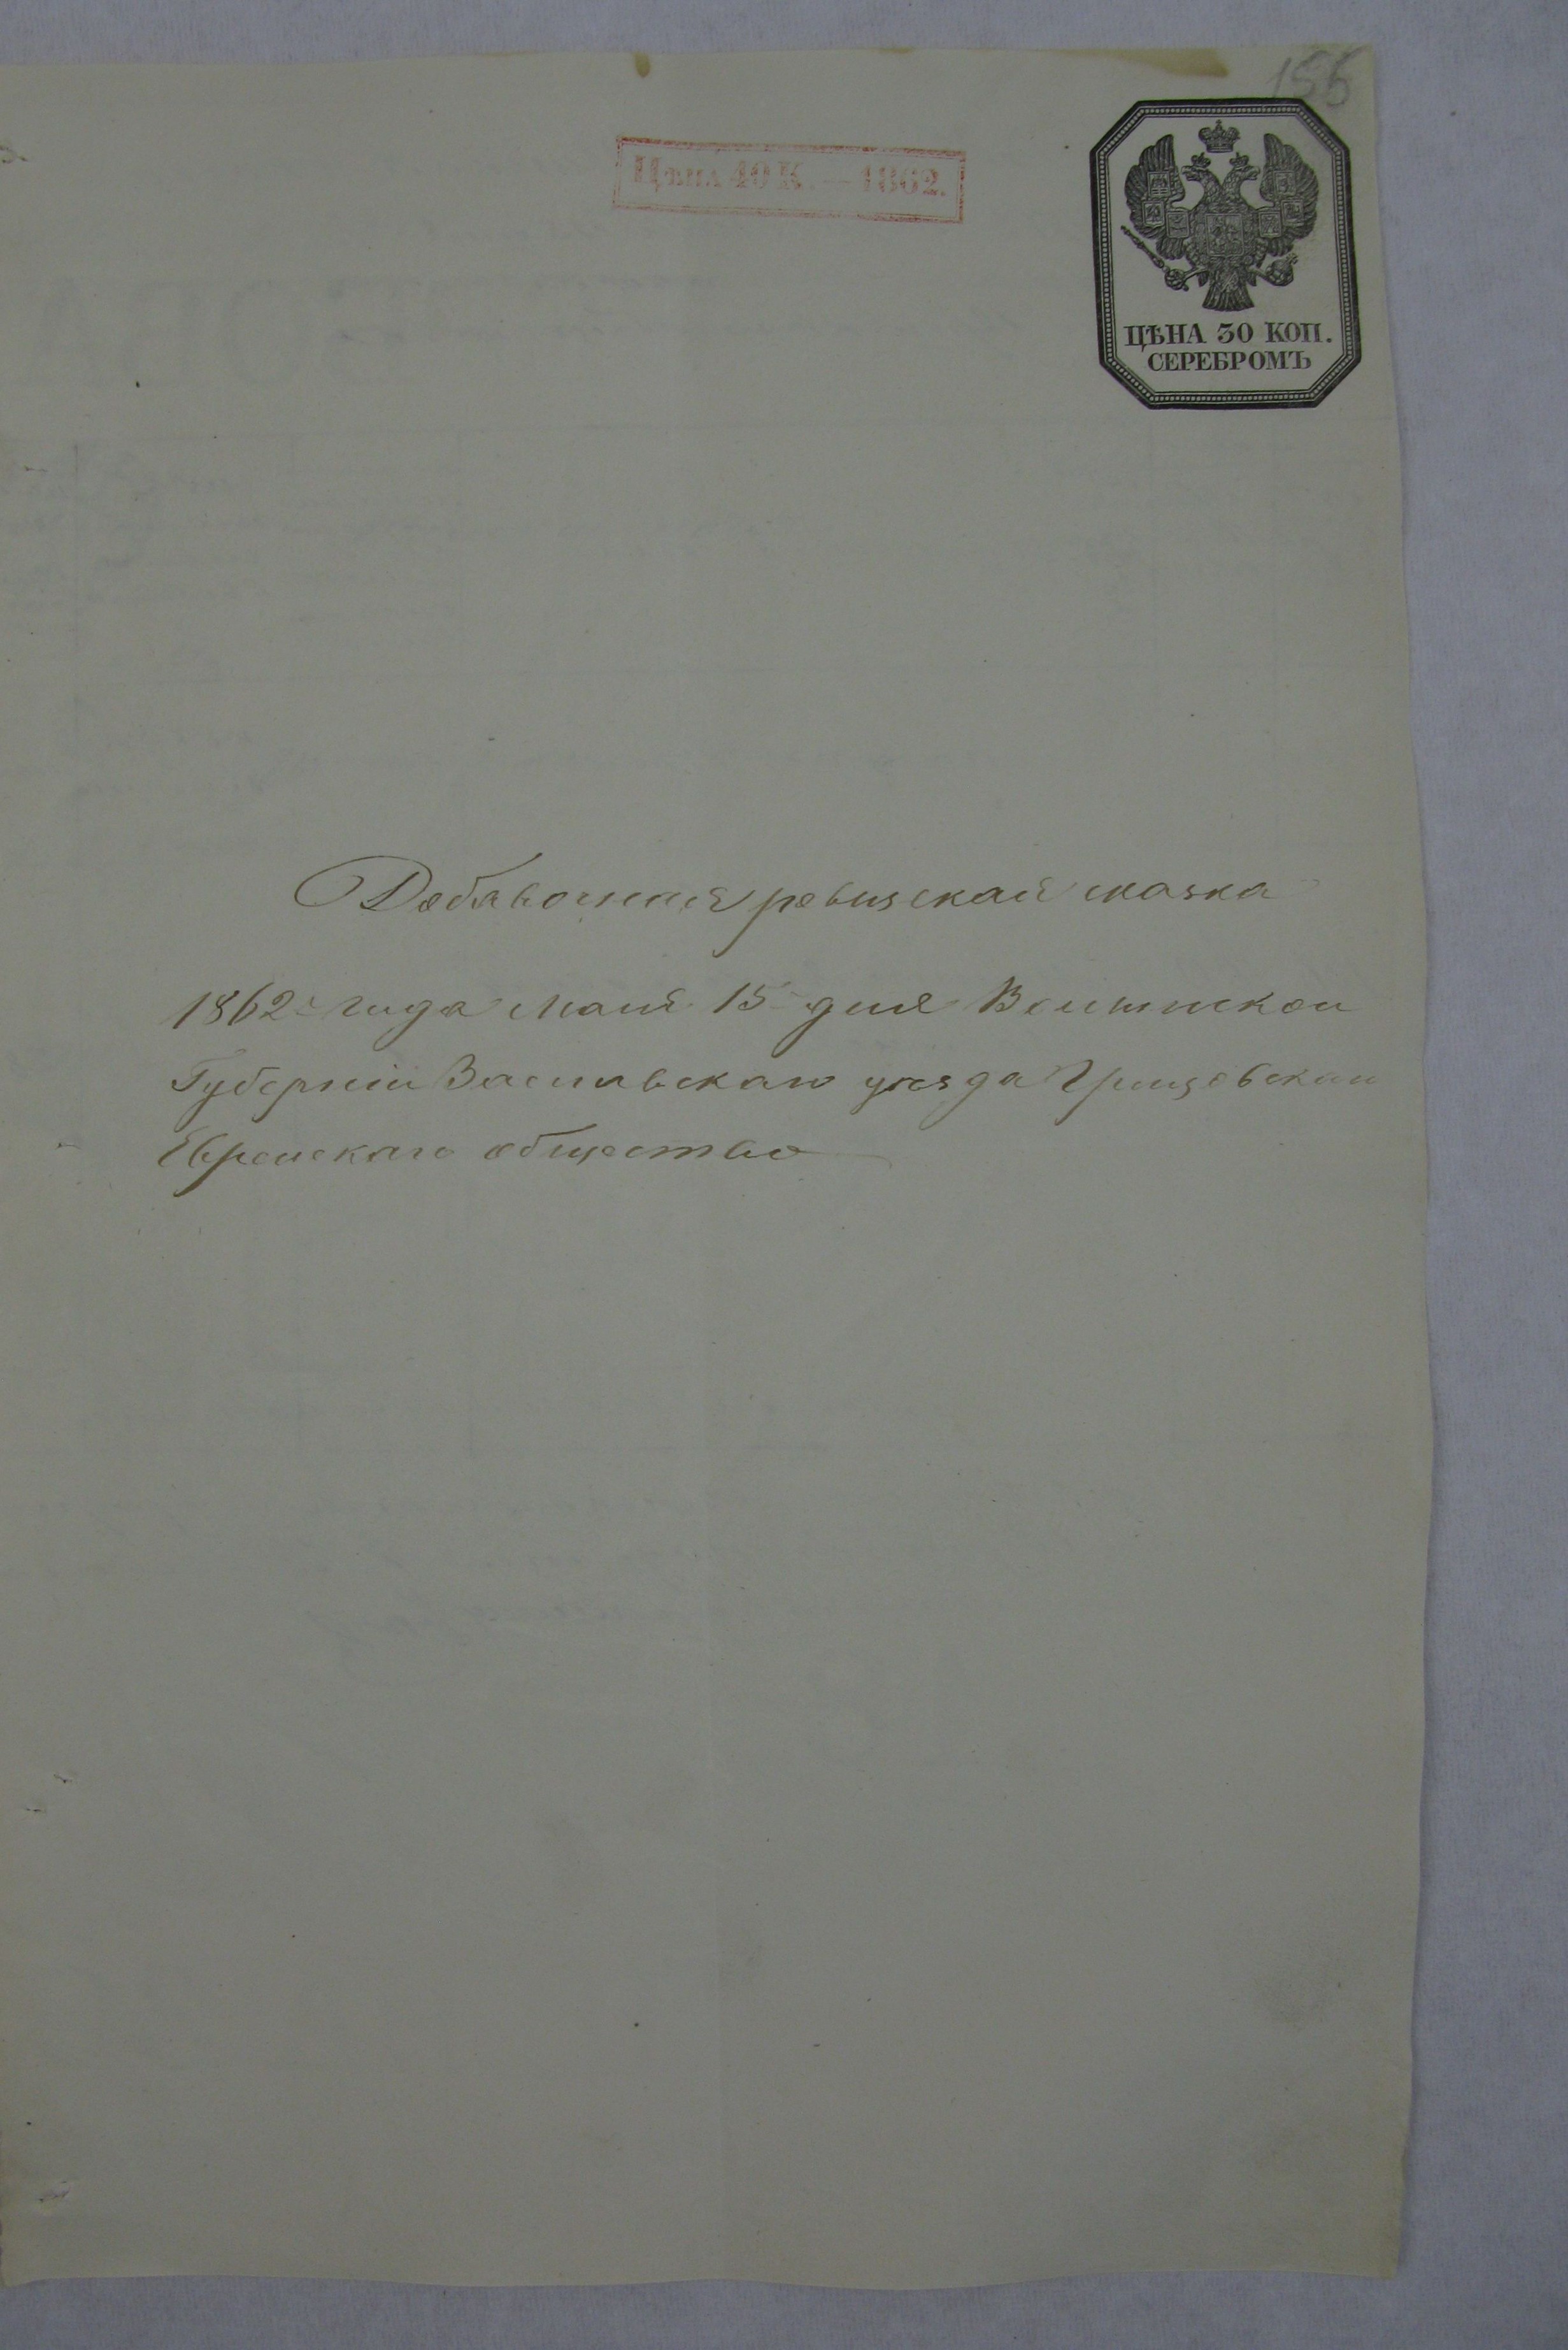 155
Цѣна 40 К. — 1862.
ЦѢНА 30 КОП.
СЕРЕБРОМЪ
Добавочная ревизская сказка
1862 года Мая 15 дня Волынской
Губерніи Заславскаго уезда Грицовскаго
Еврейскаго общество